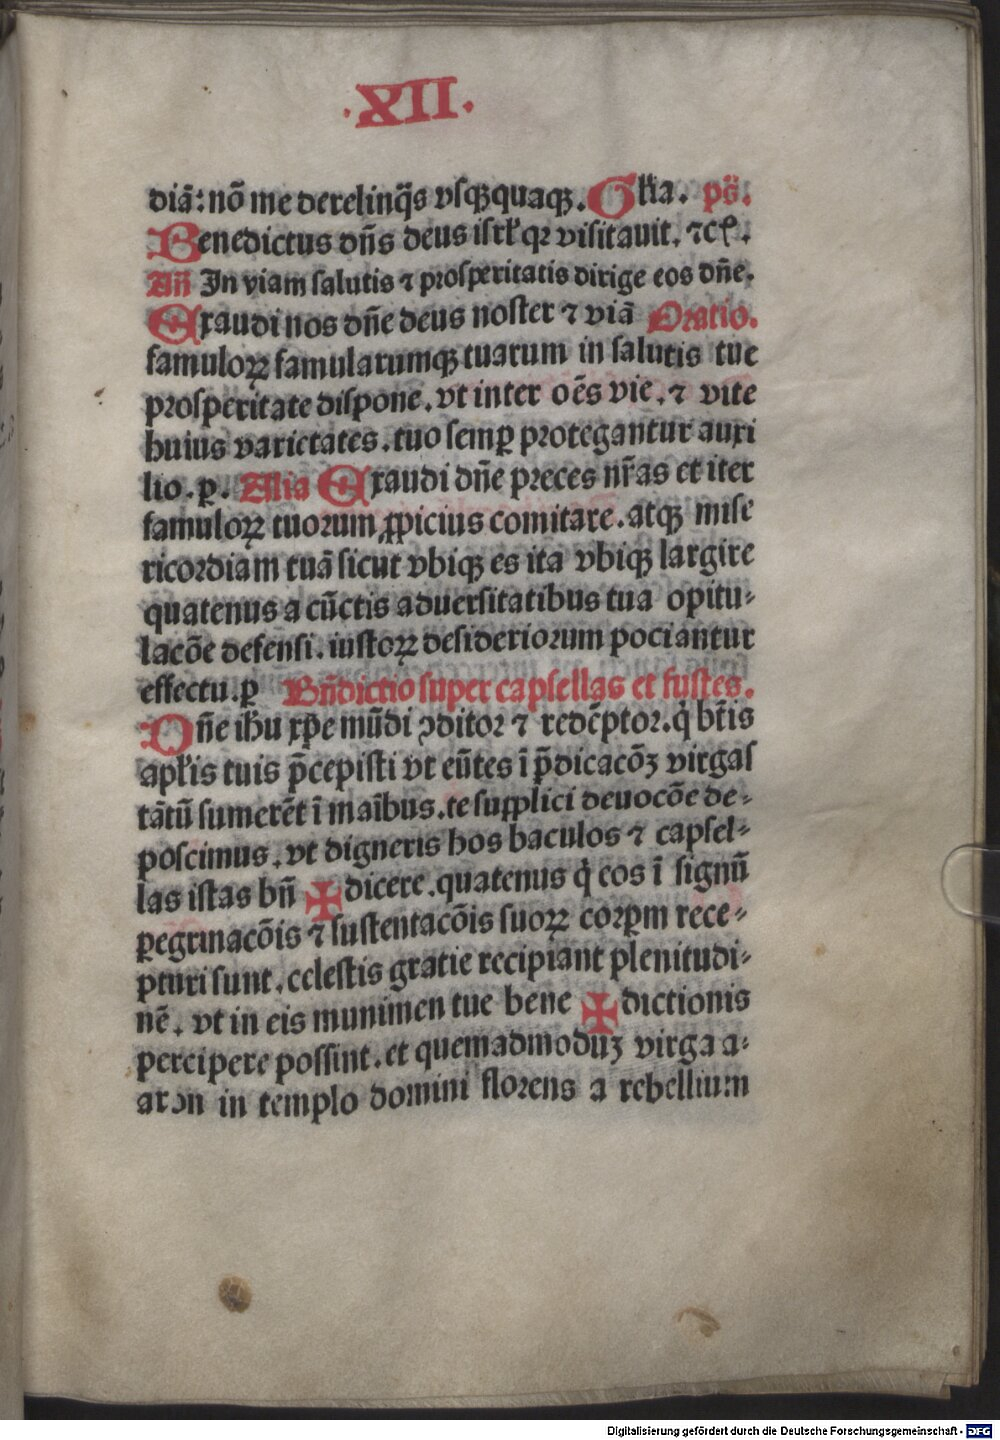 ·XII·
diā: nō me derelinq̄s vsqꝫquaqꝫ. Gl̄ia. pš.
Benedictus dn̄s deus isrl̄ qꝛ visitauit. ⁊cꝭ.
An̄ In viam salutis ⁊ prosperitatis dirige eos dn̄e.
Exaudi nos dn̄e deus noster ⁊ viā Oratio.
famuloꝝ famularumqꝫ tuarum in salutis tue
prosperitate dispone. vt inter oēs vie. ⁊ vite
huius varietates. tuo semꝑ protegantur auxi
lio. ꝑ. Alia Exaudi dn̄e preces nr̄as et iter
famuloꝝ tuorum ꝓpicius comitare. atqꝫ mise
ricordiam tuā sicut vbiqꝫ es ita vbiqꝫ largire
quatenus a cūctis aduersitatibus tua opitu⸗
lacōe defensi. iustoꝝ desideriorum pociantur
effectu. ꝑ Bn̄dictio super capsellas et fustes.
Dn̄e ihū xp̄e mūdi ꝯditor ⁊ redēptor. q̇ bt̄is
apl̄is tuis p̄cepisti vt eūtes ī p̄dicacōꝫ virgas
tātū sumerēt ī maībus. te supplici deuocōe de⸗
poscimus. vt digneris hos baculos ⁊ capsel⸗
las istas bn̄ ✠ dicere. quatenus q̇ eos ī signū
ꝑegrinacōis ⁊ sustentacōis suoꝝ corꝑm rece⸗
pturi sunt. celestis gratie recipiant plenitudi⸗
nē. vt in eis munimen tue bene ✠ dictionis
percipere possint. et quemadmoduꝫ virga a⸗
aron in templo domini florens a rebellium
Digitalisierung gefördert durch die Deutsche Forschungsgemeinschaft - DFG